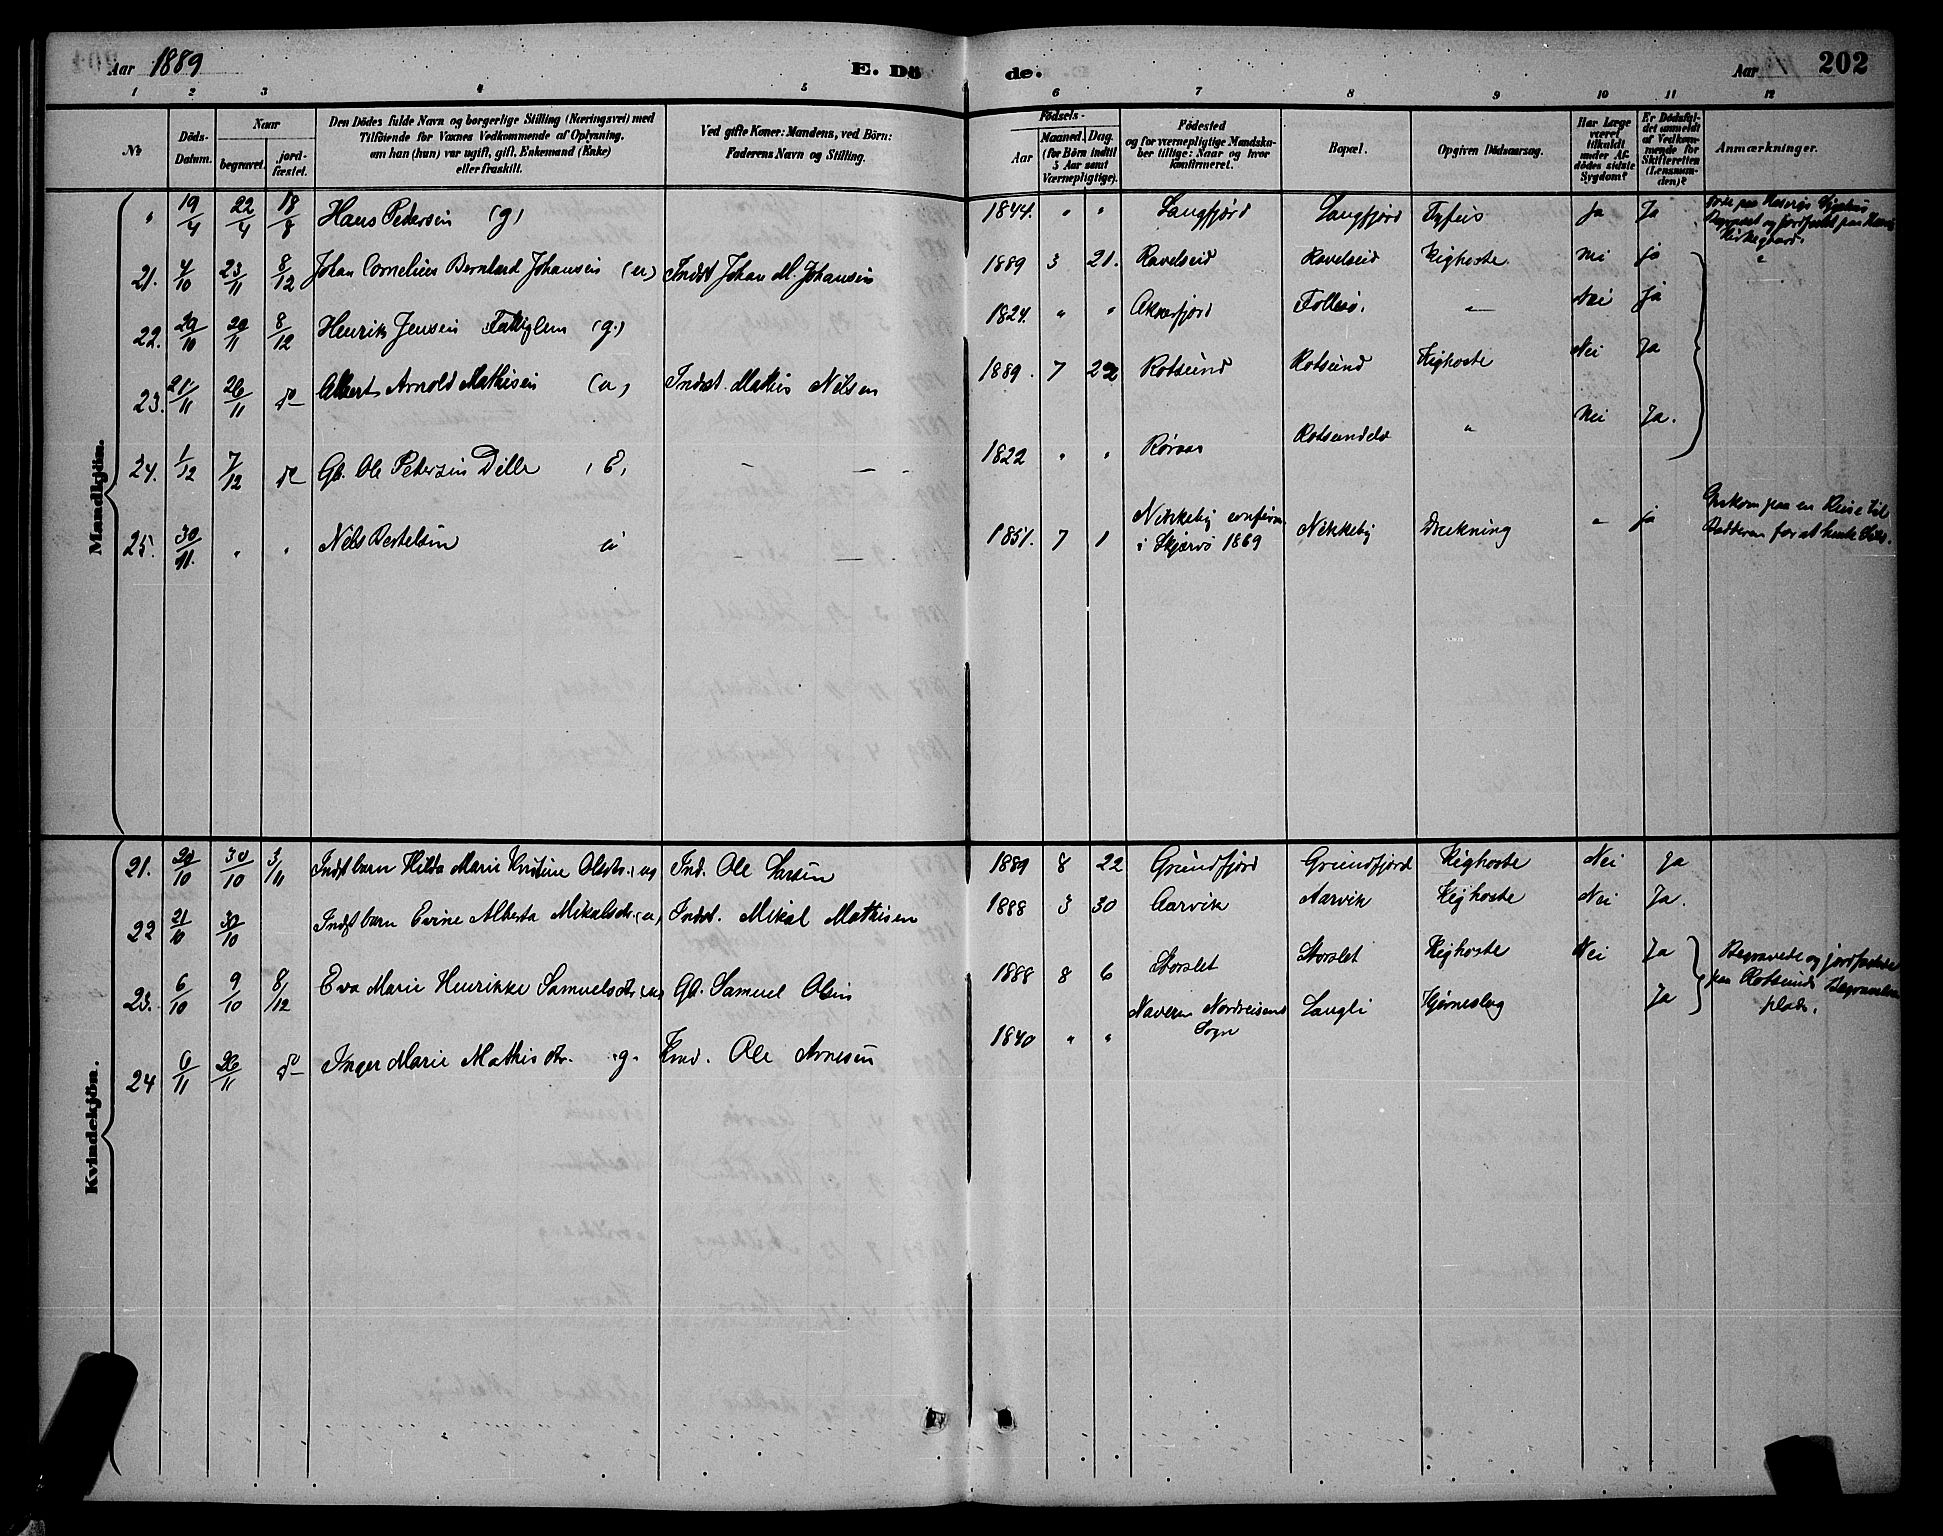 Aar 1889 E. Dö de. Aar 202
1 2 3 4 5 6 7 8 9 10 11 12
No
Döds-Datum.
Naar
begravet.
jord-fæstet.
Den Dödes fulde Navn og borgerlige Stilling (Næringsvei) med
Tilföiende for Voxnes Vedkommende af Oplysning,
om han (hun) var ugift, gift, Enkemand (Enke)
eller fraskilt.
Ved gifte Koner: Mandens, ved Börn:
Faderens Navn og Stilling.
Födsels-
Aar
Maaned. Dag.
(for Börn indtil
5 Aar samt
Værnepligtige).
Födested
og for værnepligtige Mandska-
ber tillige: Naar og hvor
konfirmeret.
Bopæl.
Opgiven Dödsaarsag.
Har Læge
været
tilkaldt
under Af-
dödes sidste
Sygdom?
Er Dödsfal-
det anmeldt
af Vedkom-
mende for
Skifteretten
(Lensman-
den)?
Anmærkninger.
Mandkjön.
" 19/4 22/4 18/8 Hans Pedersen (g) 1844. " " Langfjord Langfjord Tyfus Ja Ja
Kirkegaard.
21. 4/10 23/11 8/12 Johan Cornelius Bernhard Johansen (u) Indst Johan M. Johansen 1889 3 21. Ravelseid Ravelseid Kighoste Nei ja "
22. 29/10 29/11 8/12 Henrik Jensen (g.) 1824. " " Follesø. — Nei Ja
23. 21/11 26/11 do Albert Arnold Mathisen (u) Indst. Mathis Nilsen 1889. 7 22 Rotsund Rotsund Kighoste Nei Ja
24. 1/12 7/12 do Gb. Ole Petersen Dille (E) — — 1822 " " Røraas Rotsundelv " Nei Ja.
25. 30/11. " " Nils Bertelsen u — — 1851. 7 1 Nikkeby confirm.
i Skjærvø 1869 Nikkeby Drukning " ja Omkom paa en Reise til
for at hente
Kvindekjön.
21. 20/10 30/10 3/11 Indst barn Hilda Marie Kristine Olsdtr. (u) Ind. Ole Larsen 1889 8 22 Grundfjord Grundfjord Kighoste Nei Ja
22 21/10 30/10 Indst barn Evine Alberta Mikalsdtr (u) Indst. Mikal Mathisen 1888 3 30 Aarvik Aarvik Kighoste Nei Ja.
23. 6/10 9/10 8/12 Eva Marie Henrikke Samuelsdtr (u) Gb. Samuel Olsen 1888 8 6 Storslet Storslet Kighoste Nei Ja Begravede og jordfæstede
paa Rotsunds Begravelses
plads.
24 6/11 26/11 do Inger Marie Mathisdtr. g. Ole Arnesen 1840 " " Naveren Nordreisens
Sogn Langli Hjerneslag Ja